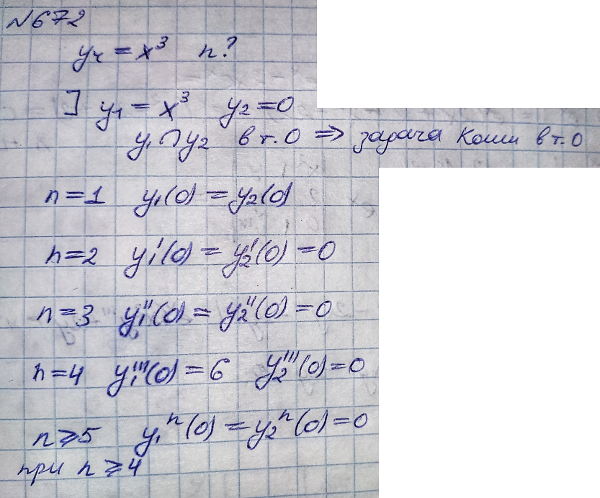 №672
yч = x³ n?
] y₁ = x³ y₂ = 0
y₁ ∩ y₂ в т.0 ⇒ задача Коши в т.0
n=1 y₁(0) = y₂(0)
n=2 y₁'(0) = y₂'(0) = 0
n=3 y₁''(0) = y₂''(0) = 0
n=4 y₁'''(0) = 6 y₂'''(0) = 0
n⩾5 y₁ⁿ(0) = y₂ⁿ(0) = 0
при n⩾4